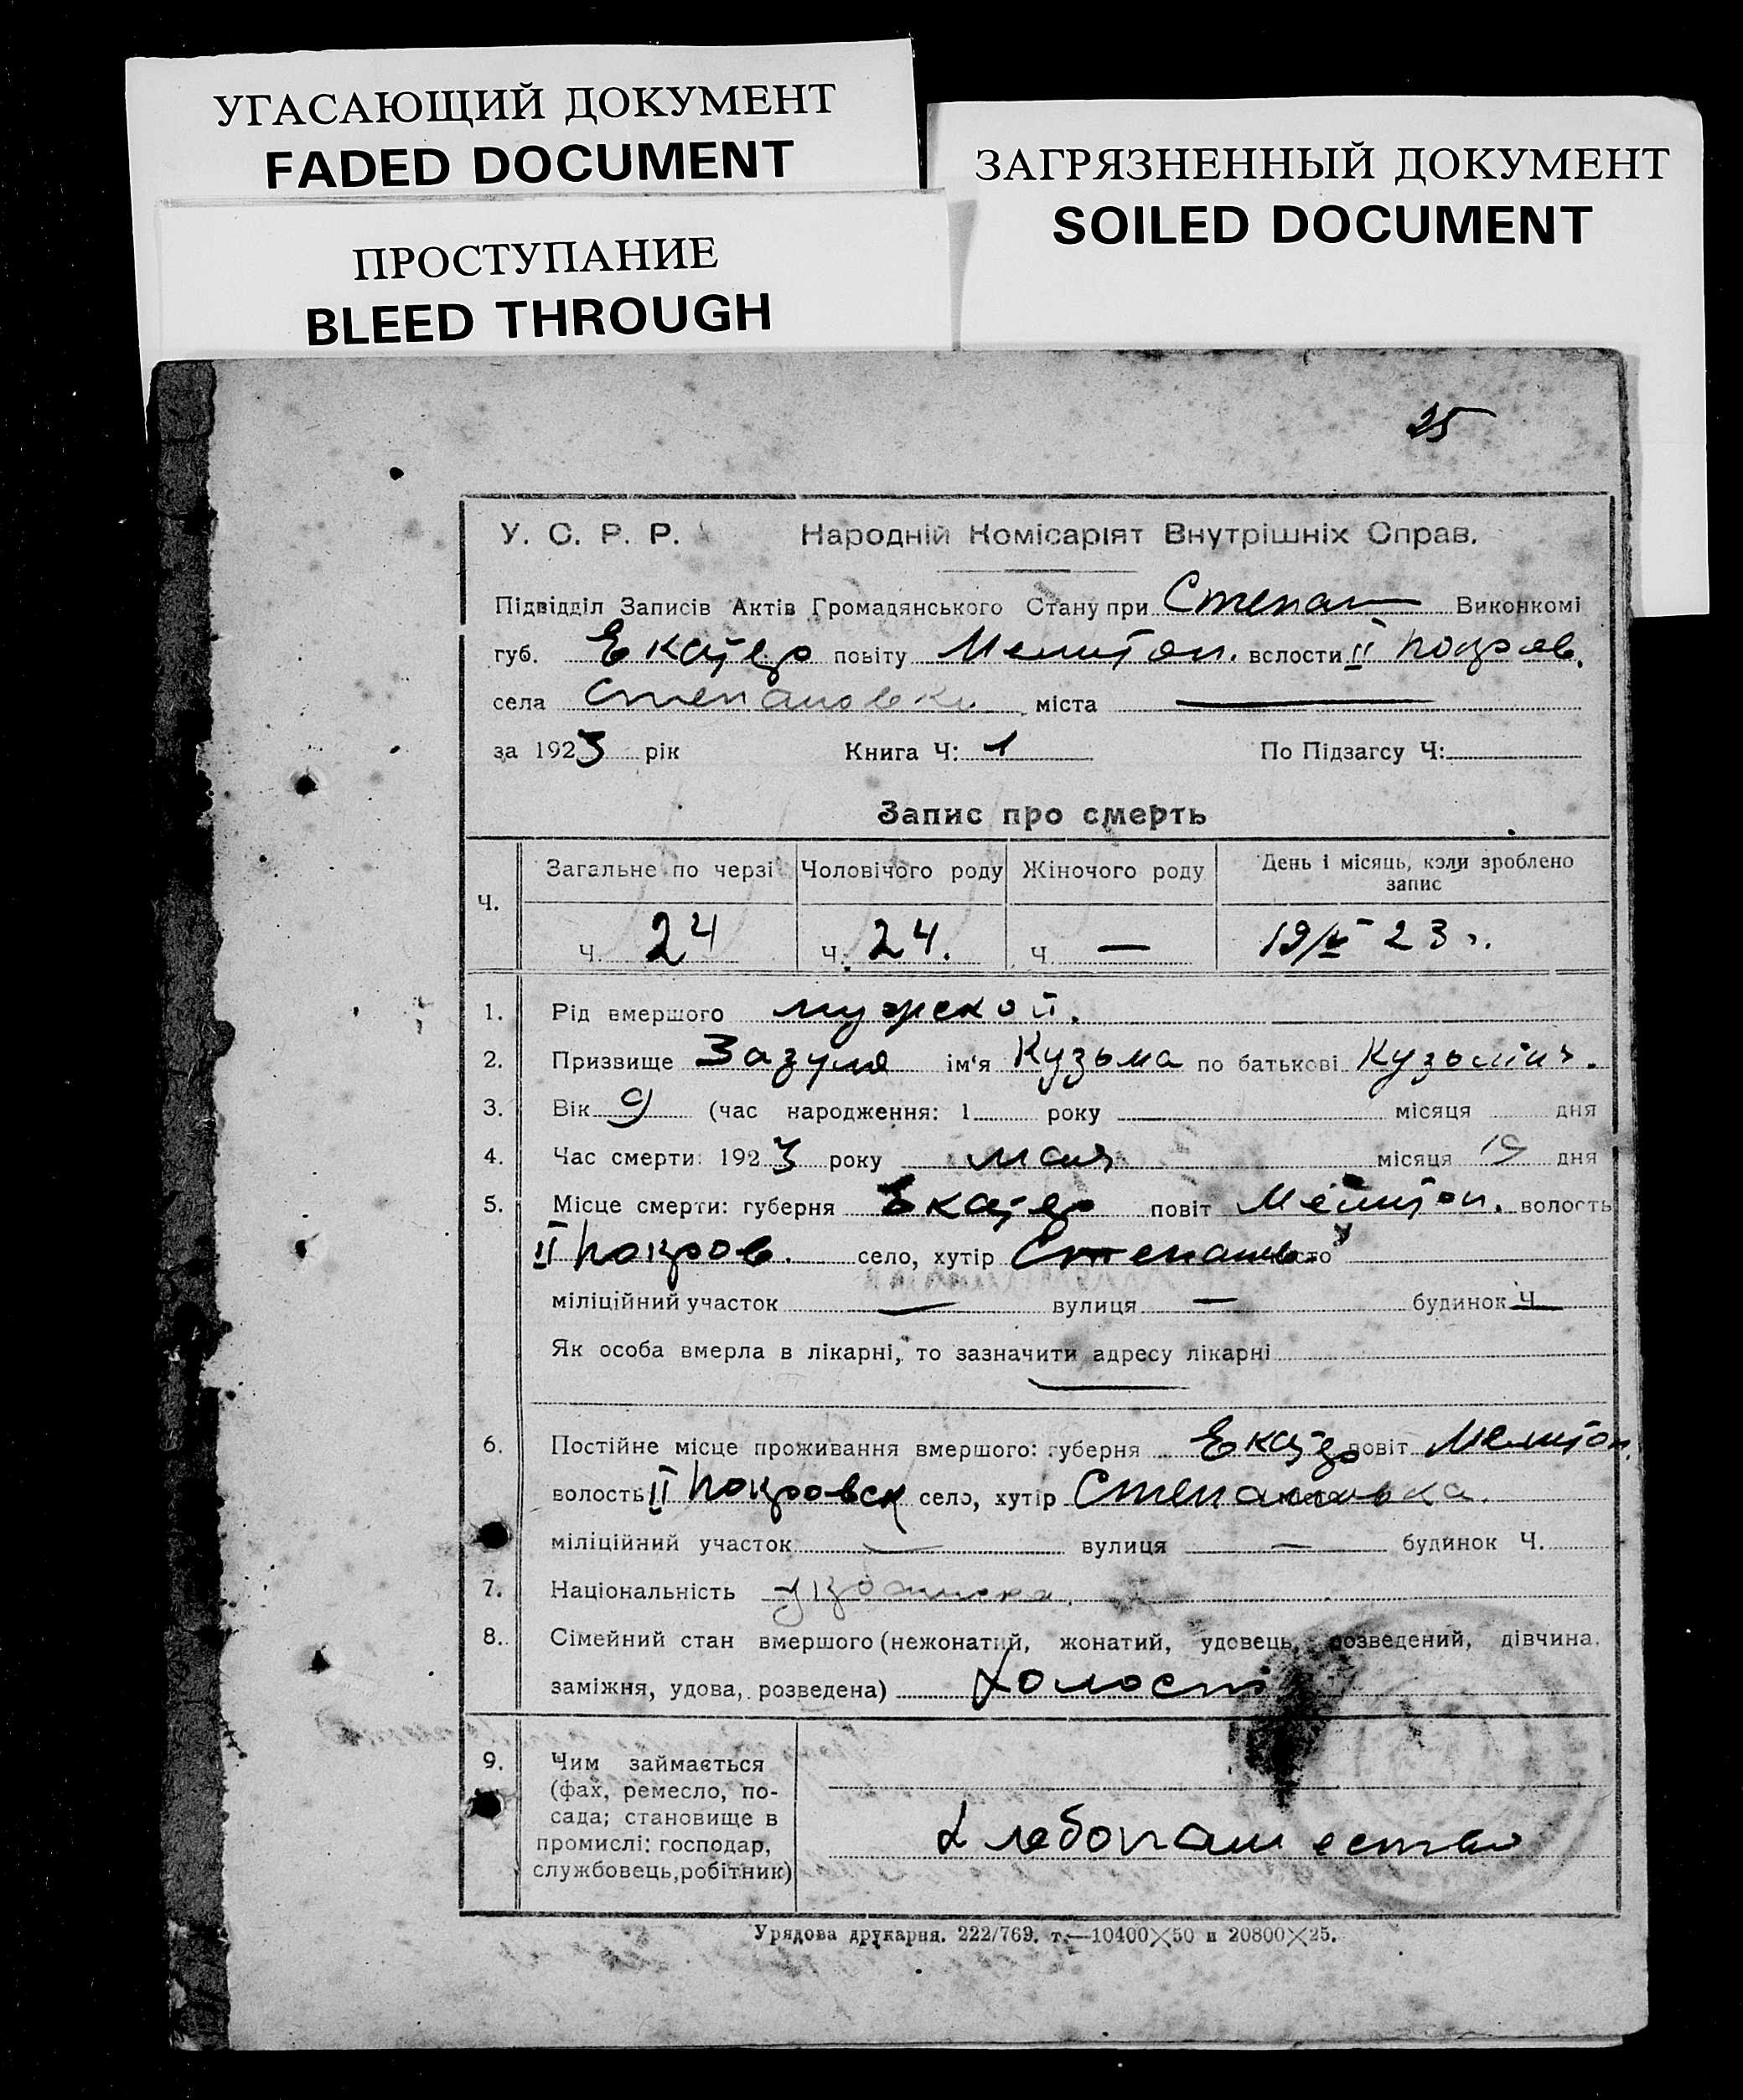 УГАСАЮЩИЙ ДОКУМЕНТ
FADED DOCUMENT
ПРОСТУПАНИЕ
BLEED THROUGH
ЗАГРЯЗНЕННЫЙ ДОКУМЕНТ
SOILED DOCUMENT
25
У. С. Р. Р. Народній Комісаріят Внутрішніх Справ.
Підвідділ Записів Актів Громадянського Стану при Степан Виконкомі
губ. Екатер повіту Мелитоп. вслости II покров.
села Степановки міста —
за 1923 рік Книга Ч: 1 По Підзагсу Ч:
Запис про смерть
Ч. Загальне по черзі Чоловічого роду Жіночого роду День і місяць, коли зроблено запис
Ч. 24 Ч. 24. Ч — 19/V 23 г.
1. Рід вмершого мужской.
2. Призвище Зазуля ім'я Кузьма по батькові Кузьмич.
3. Вік 9 (час народження: 1 року — місяця дня
4. Час смерти: 1923 року мая місяця 19 дня
5. Місце смерти: губерня Екатер повіт Мелитоп. волость
II покров. село, хутір Степанов. місто
міліційний участок — вулиця — будинок Ч —
Як особа вмерла в лікарні, то зазначити адресу лікарні
—
6. Постійне місце проживання вмершого: губерня Екатер повіт Мелитоп.
волость II покровск село, хутір Степановка.
міліційний участок — вулиця — будинок Ч.
7. Національність
8. Сімейний стан вмершого (нежонатий, жонатий, удовець, розведений, дівчина,
заміжня, удова, розведена) холост
9. Чим займається
(фах, ремесло, по-
сада; становище в
промислі: господар,
службовець, робітник)
хлебопашество
Урядова друкарня. 222/769. т.—10400×50 и 20800×25.